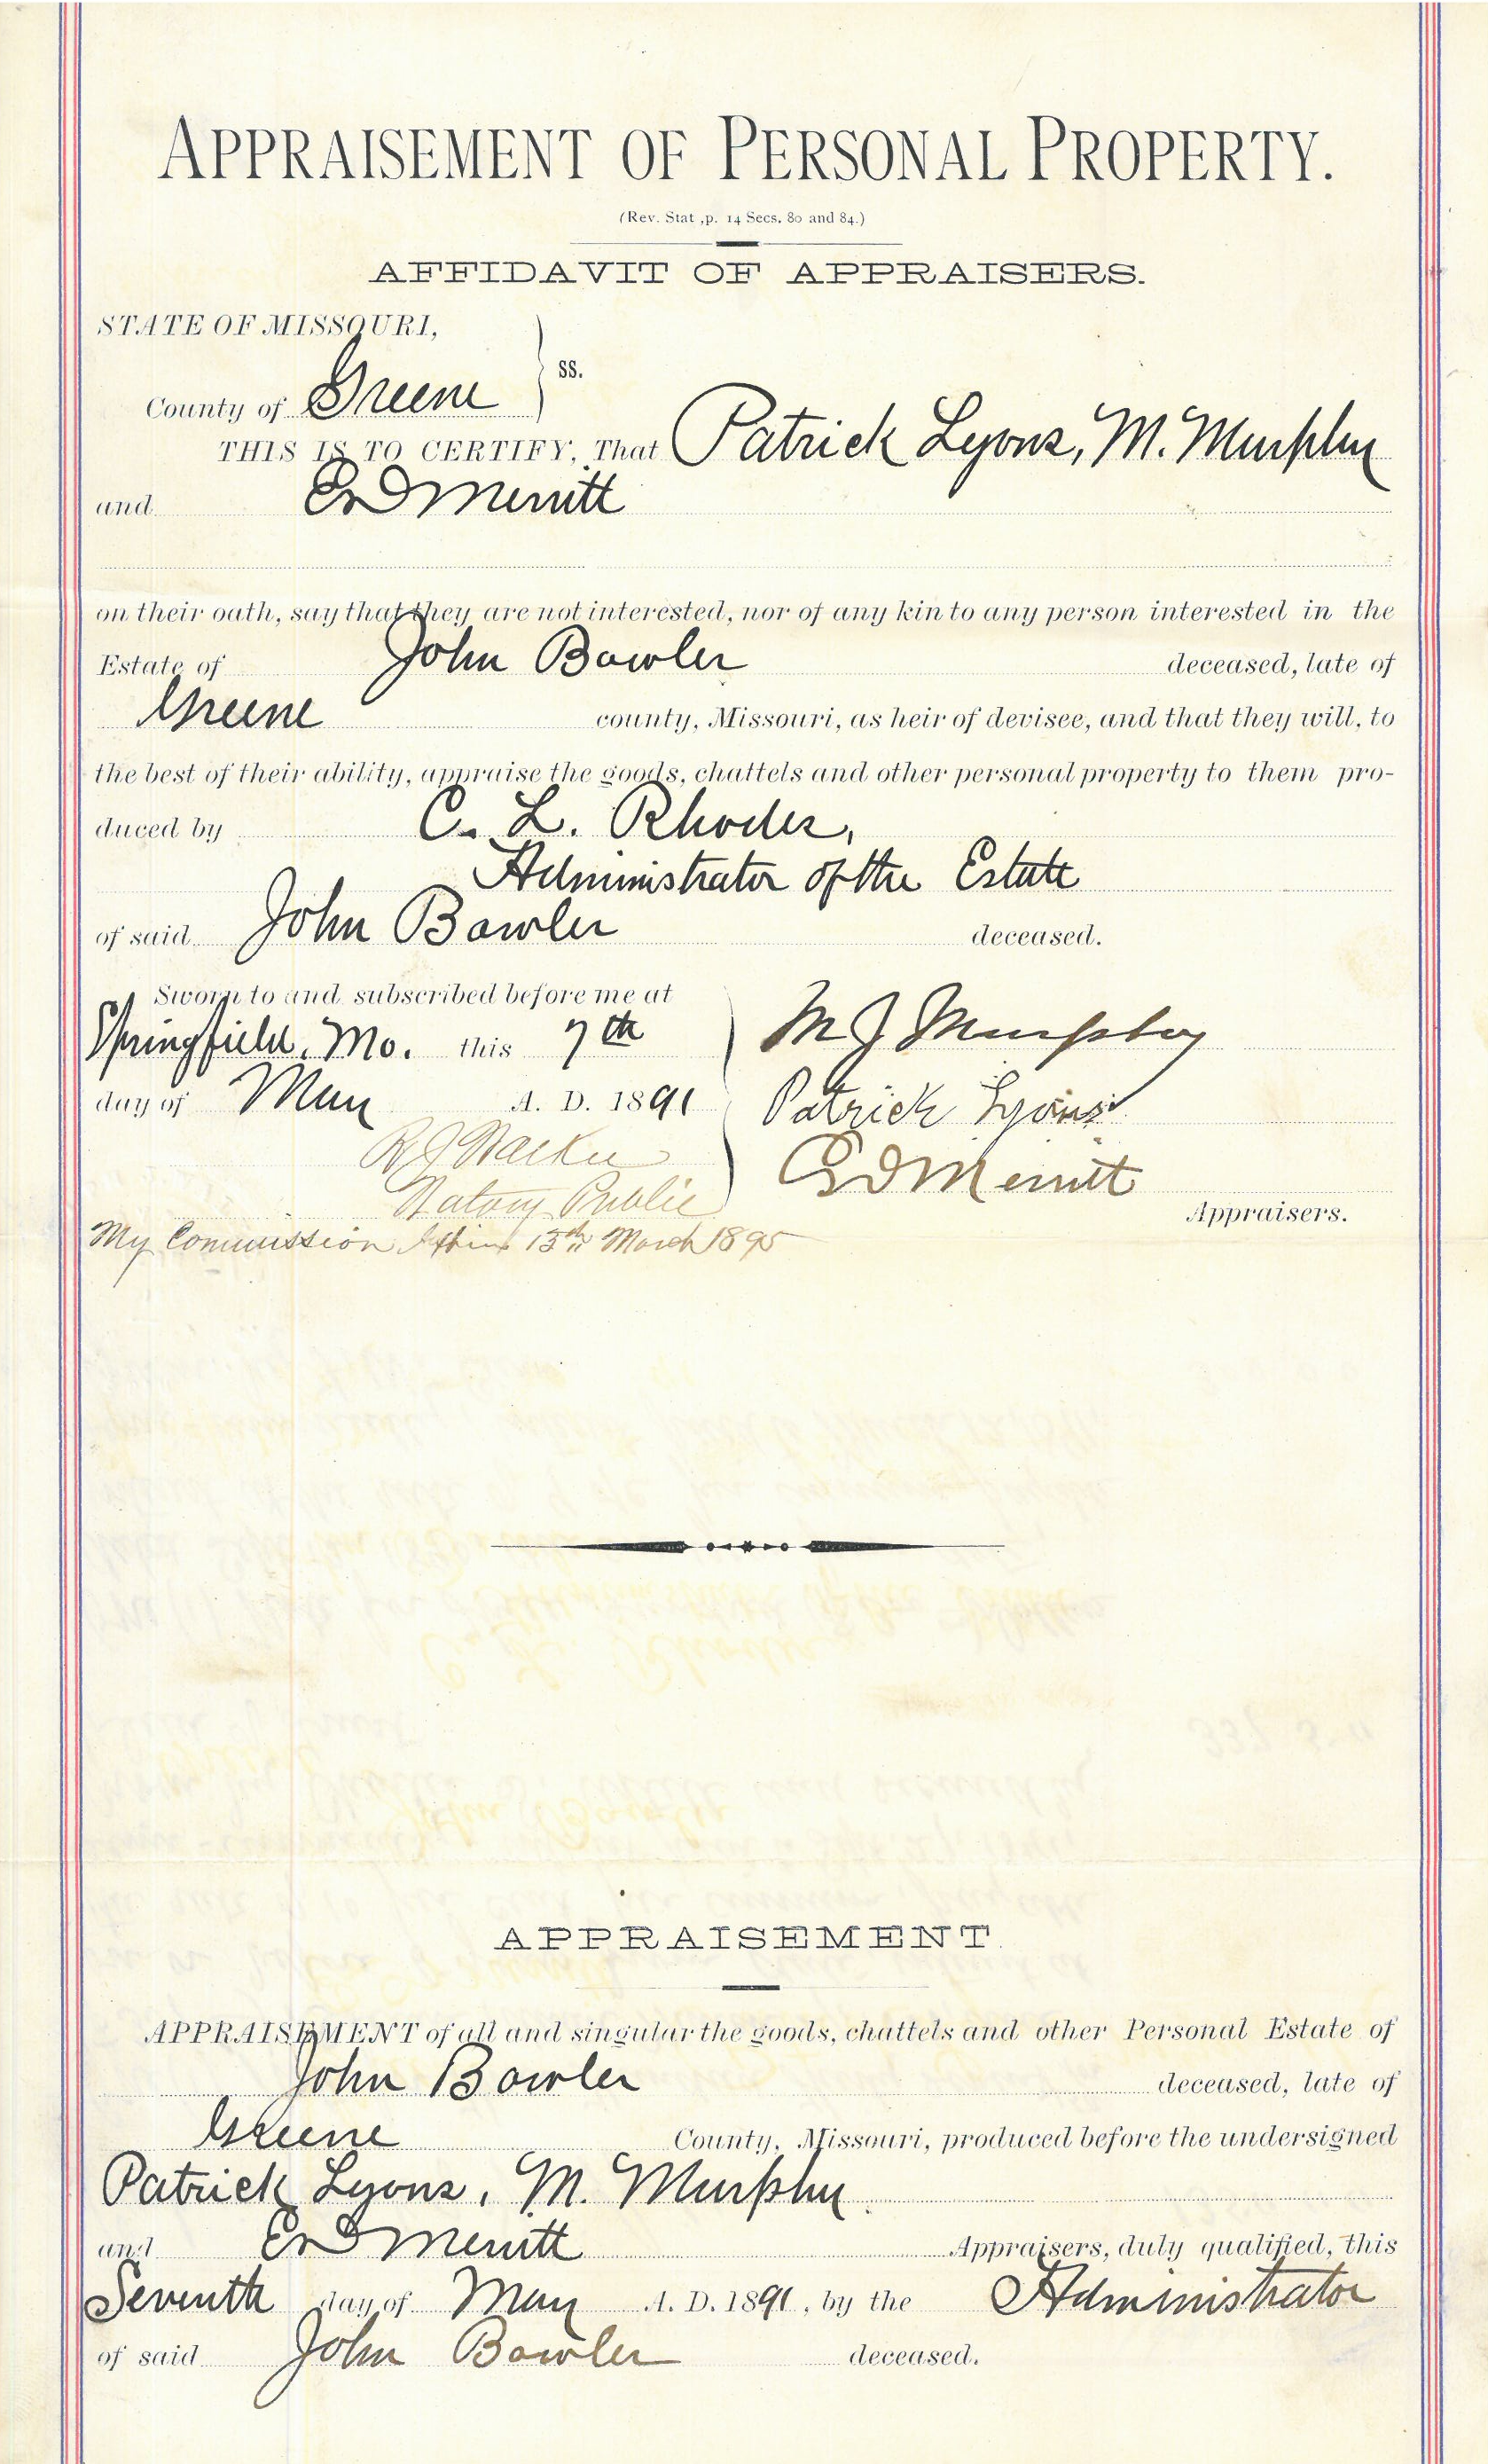 APPRAISEMENT OF PERSONAL PROPERTY.
(Rev. Stat ,p. 14 Secs. 80 and 84.)
AFFIDAVIT OF APPRAISERS.
STATE OF MISSOURI,
ss.
County of Greene
THIS IS TO CERTIFY, That Patrick Lyons, M. Murphy
and E D Merritt
on their oath, say that they are not interested, nor of any kin to any person interested in the
Estate of John Bowler deceased, late of
Greene county, Missouri, as heir of devisee, and that they will, to
the best of their ability, appraise the goods, chattels and other personal property to them pro-
duced by C. L. Rhodes,
Administrator of the Estate
of said John Bowler deceased.
Sworn to and subscribed before me at
Springfield, Mo. this 7th
day of May A. D. 1891
M J Murphy
Patrick Lyons
E D Merritt
Appraisers.
R J
Notary Public
My Commission Expires 13th March 1895
APPRAISEMENT.
APPRAISEMENT of all and singular the goods, chattels and other Personal Estate of
John Bowler deceased, late of
Greene County, Missouri, produced before the undersigned
Patrick Lyons, M. Murphy
and E D Merritt Appraisers, duly qualified, this
Seventh day of May A. D. 1891, by the Administrator
of said John Bowler deceased.